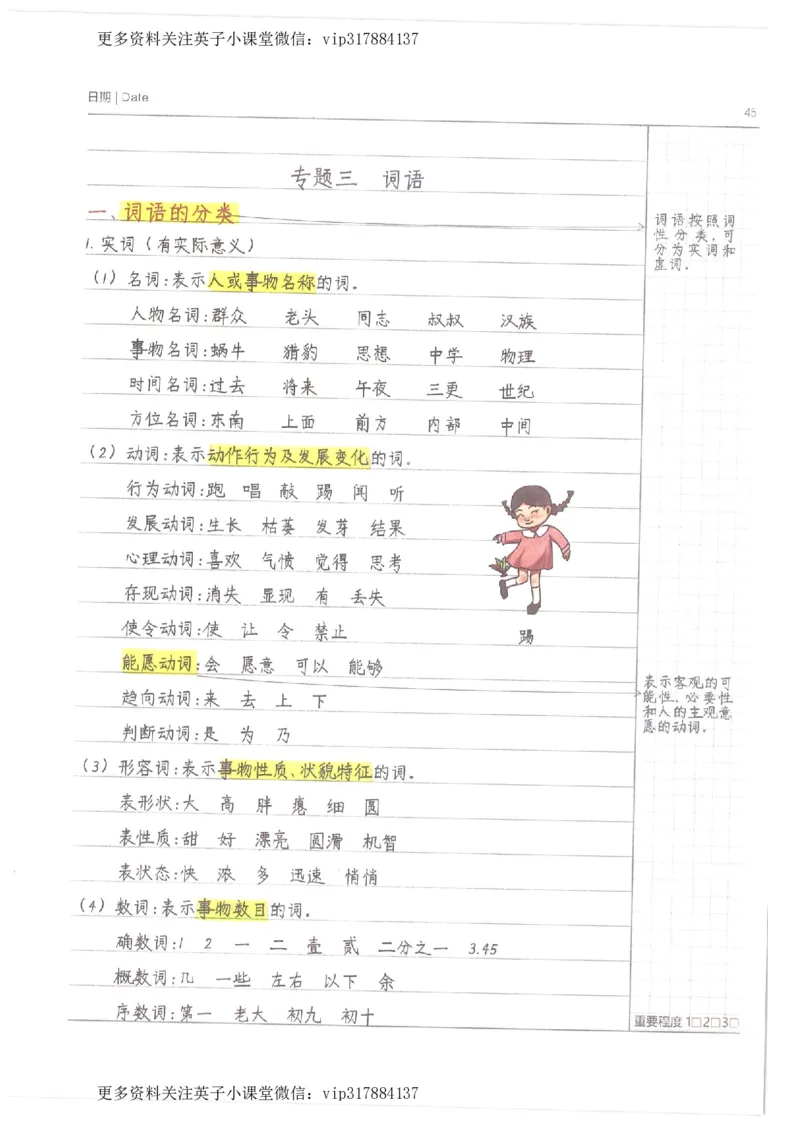 更多资料关注英子小课堂微信：vip317884137
日期 | Date
45
专题三 词语
一、词语的分类
词语按照词
性分类，可
分为实词和
虚词。
1. 实词（有实际意义）
（1）名词：表示人或事物名称的词。
人物名词：群众 老头 同志 叔叔 汉族
事物名词：蜗牛 猎豹 思想 中学 物理
时间名词：过去 将来 午夜 三更 世纪
方位名词：东南 上面 前方 内部 中间
（2）动词：表示动作行为及发展变化的词。
行为动词：跑 唱 敲 踢 闻 听
发展动词：生长 枯萎 发芽 结果
心理动词：喜欢 气愤 觉得 思考
存现动词：消失 显现 有 丢失
使令动词：使 让 令 禁止
踢
能愿动词：会 愿意 可以 能够
表示客观的可
能性、必要性
和人的主观意
愿的动词。
趋向动词：来 去 上 下
判断动词：是 为 乃
（3）形容词：表示事物性质、状貌特征的词。
表形状：大 高 胖 瘪 细 圆
表性质：甜 好 漂亮 圆滑 机智
表状态：快 浓 多 迅速 悄悄
（4）数词：表示事物数目的词。
确数词：1 2 一 二 壹 贰 二分之一 3.45
概数词：几 一些 左右 以下 余
序数词：第一 老大 初九 初十
重要程度 1□2□3□
更多资料关注英子小课堂微信：vip317884137